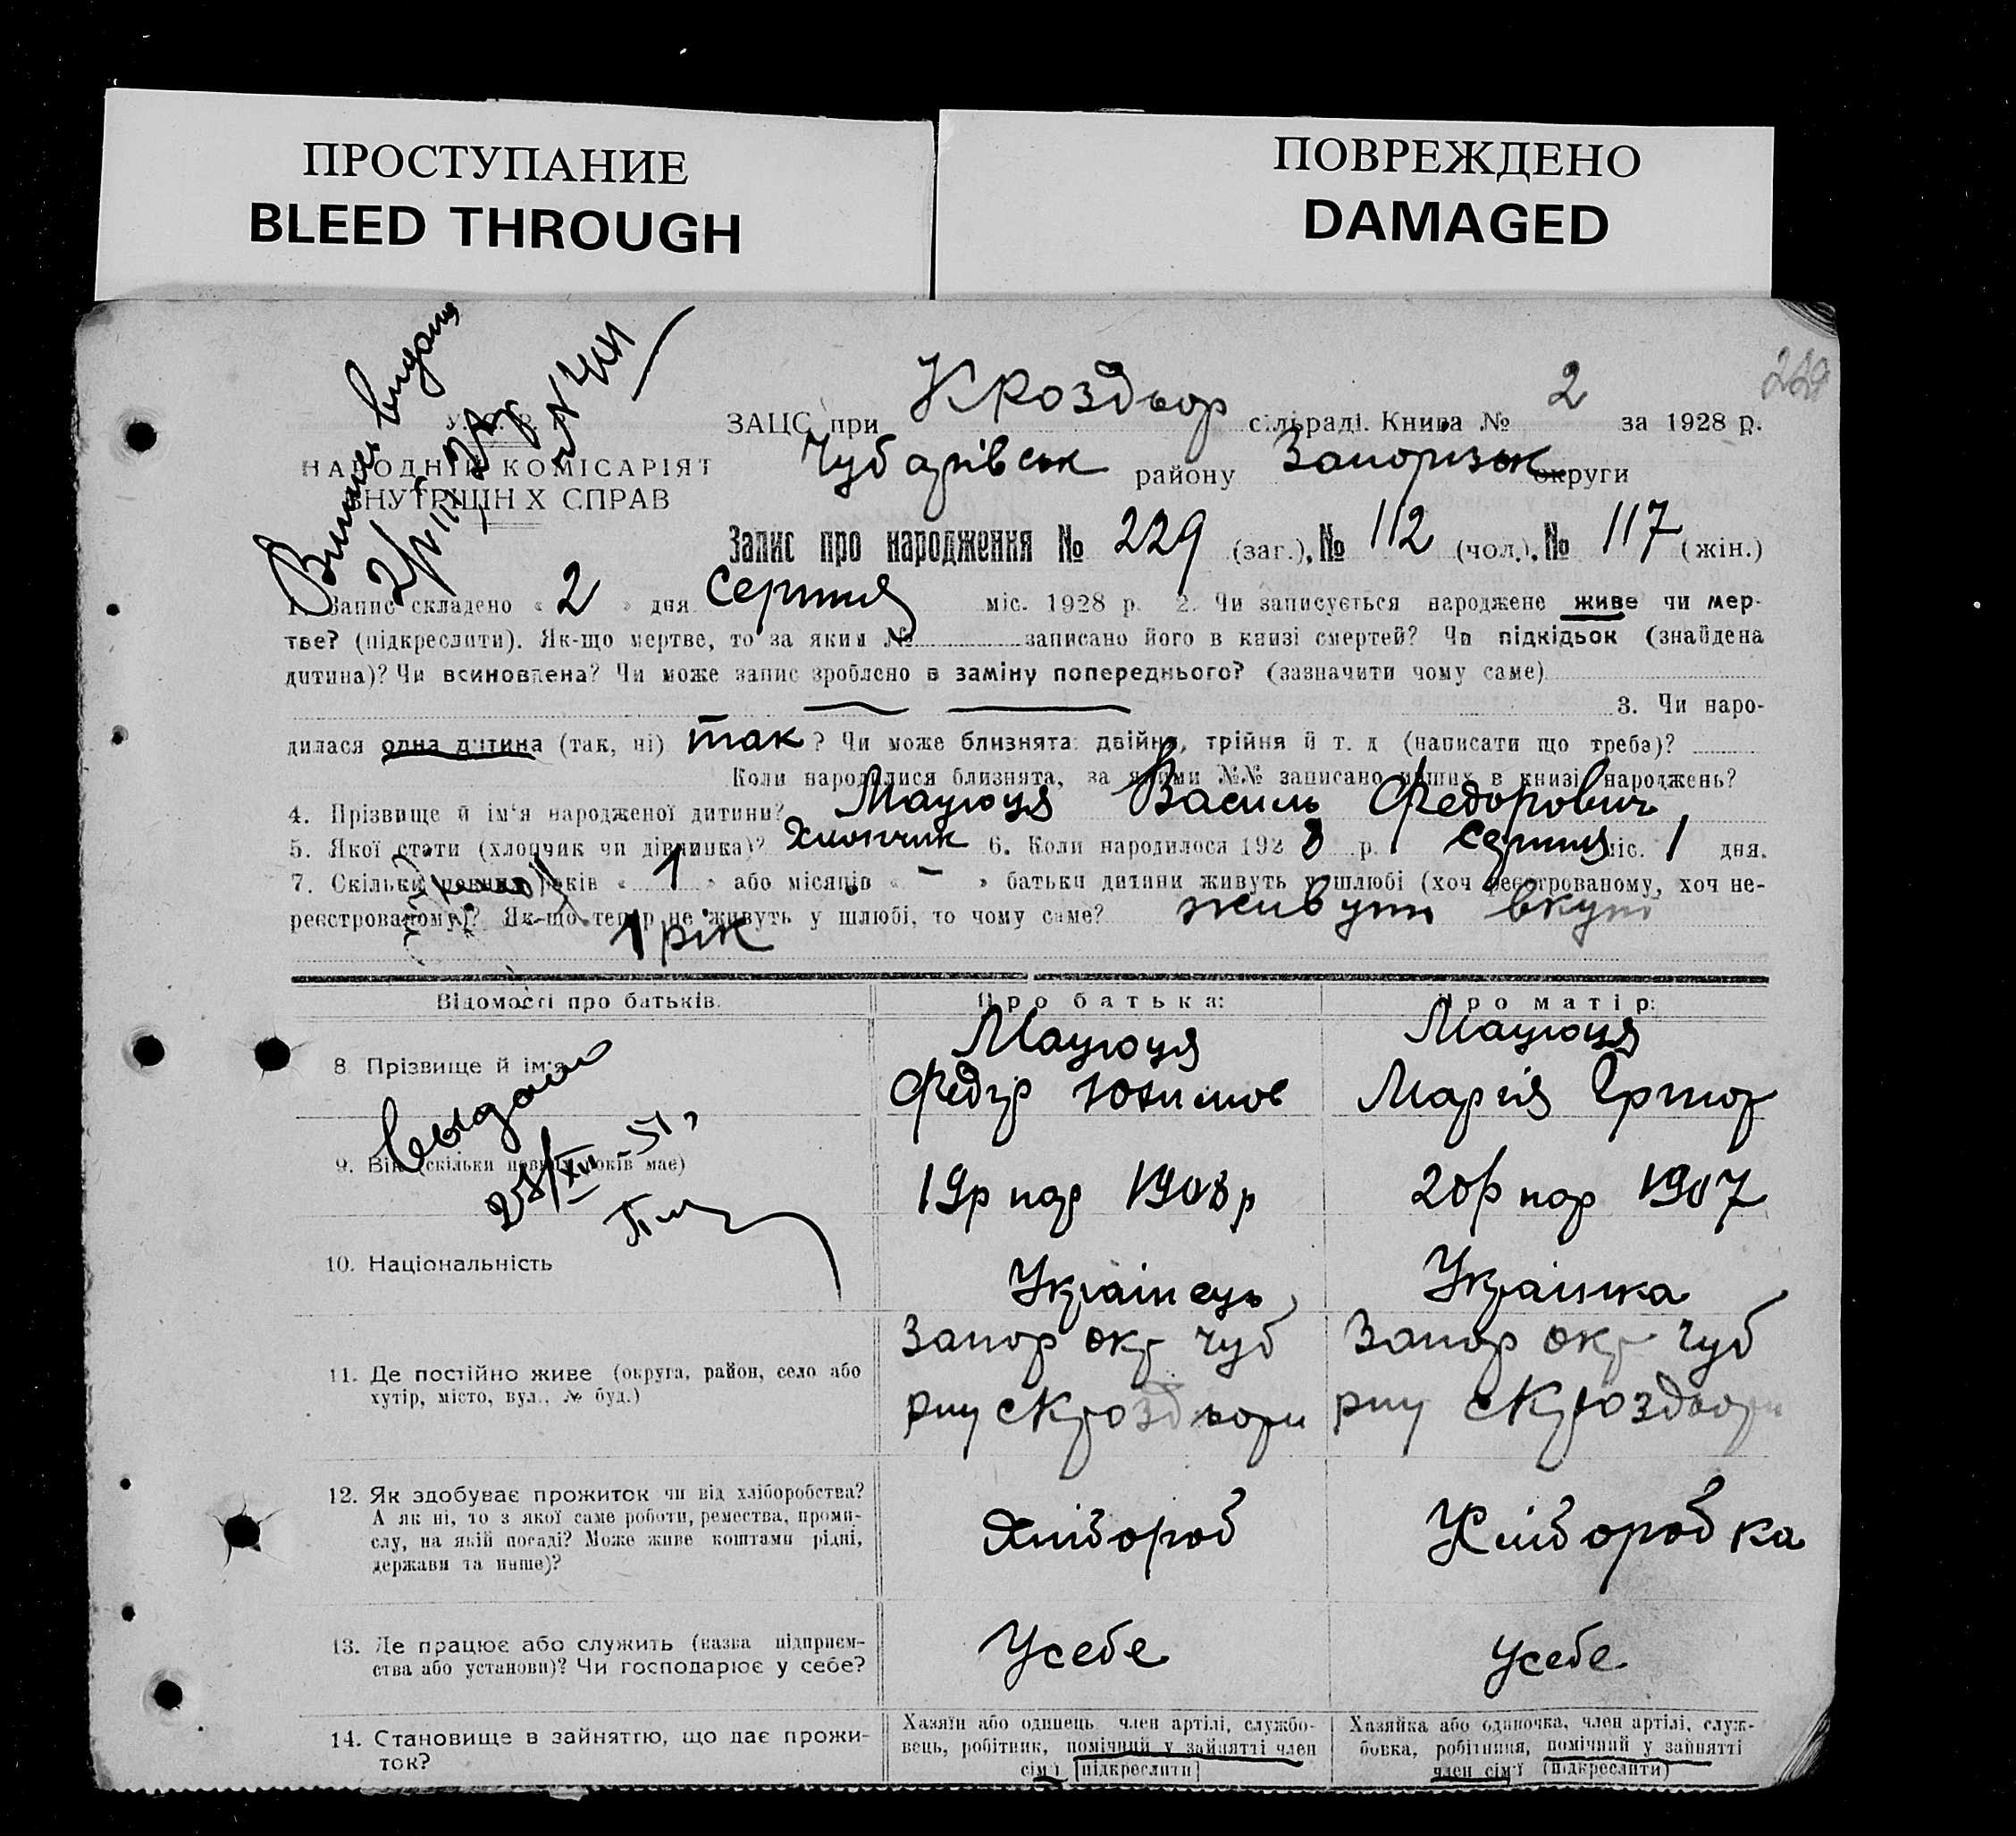 ПРОСТУПАНИЕ
BLEED THROUGH
ПОВРЕЖДЕНО
DAMAGED
ЗАЦС при К Роздьор сільраді. Книга № 2 за 1928 р.
НАРОДНІЙ КОМІСАРІЯТ
ВНУТРІШНІХ СПРАВ
Чубарівськ району Запорізьк округи
Запис про народження № 229 (заг.), № 112 (чол.), № 117 (жін.)
1. Запис складено « 2 » дня серпня міс. 1928 р. 2. Чи записується народжене живе чи мер-
тве? (підкреслити). Як-що мертве, то за яким № записано його в книзі смертей? Чи підкідьок (знайдена
дитина)? Чи всиновлена? Чи може запис зроблено в заміну попереднього? (зазначити чому саме)
3. Чи наро-
дилася одна дитина (так, ні) так ? Чи може близнята: двійня, трійня й т. д (написати що треба)?
Коли народилися близнята, за якими №№ записано інших в книзі народжень?
4. Прізвище й ім'я народженої дитини? Мацюця Василь Федорович
5. Якої стати (хлопчик чи дівчинка)? Хлопчик 6. Коли народилося 192 8 р. серпня міс. 1 дня.
7. Скільки повних років « 1 » або місяців « – » батьки дитини живуть у шлюбі (хоч реєстрованому, хоч не-
реєстрованому)? Як-що тепер не живуть у шлюбі, то чому саме? живуть вкупі
1 рік
Відомості про батьків. Про батька: Про матір:
8. Прізвище й ім'я Мацюця Мацюця
Федір Юхимов Марія
выдано
28/XII – 51
9. Вік (скільки повних років має) 19р нар 1908р 20р нар 1907
10. Національність Українець Українка
11. Де постійно живе (округа, район, село або
хутір, місто, вул., № буд.)
Запор окр Чуб Запор окр Чуб
рну с К роздьори рну с К роздьори
12. Як здобуває прожиток чи від хліборобства?
А як ні, то з якої саме роботи, ремества, проми-
слу, на якій посаді? Може живе коштами рідні,
держави та инше)?
Хлібороб Хліборобка
13. Де працює або служить (назва підприєм-
ства або установи)? Чи господарює у себе?
Усебе Усебе
14. Становище в зайняттю, що дає прожи-
ток?
Хазяїн або одинець, член артілі, службо-
вець, робітник, помічний у зайнятті член
сім'ї (підкреслити)
Хазяйка або одиночка, член артілі, служ-
бовка, робітниця, помічний у зайнятті
член сім'ї (підкреслити)